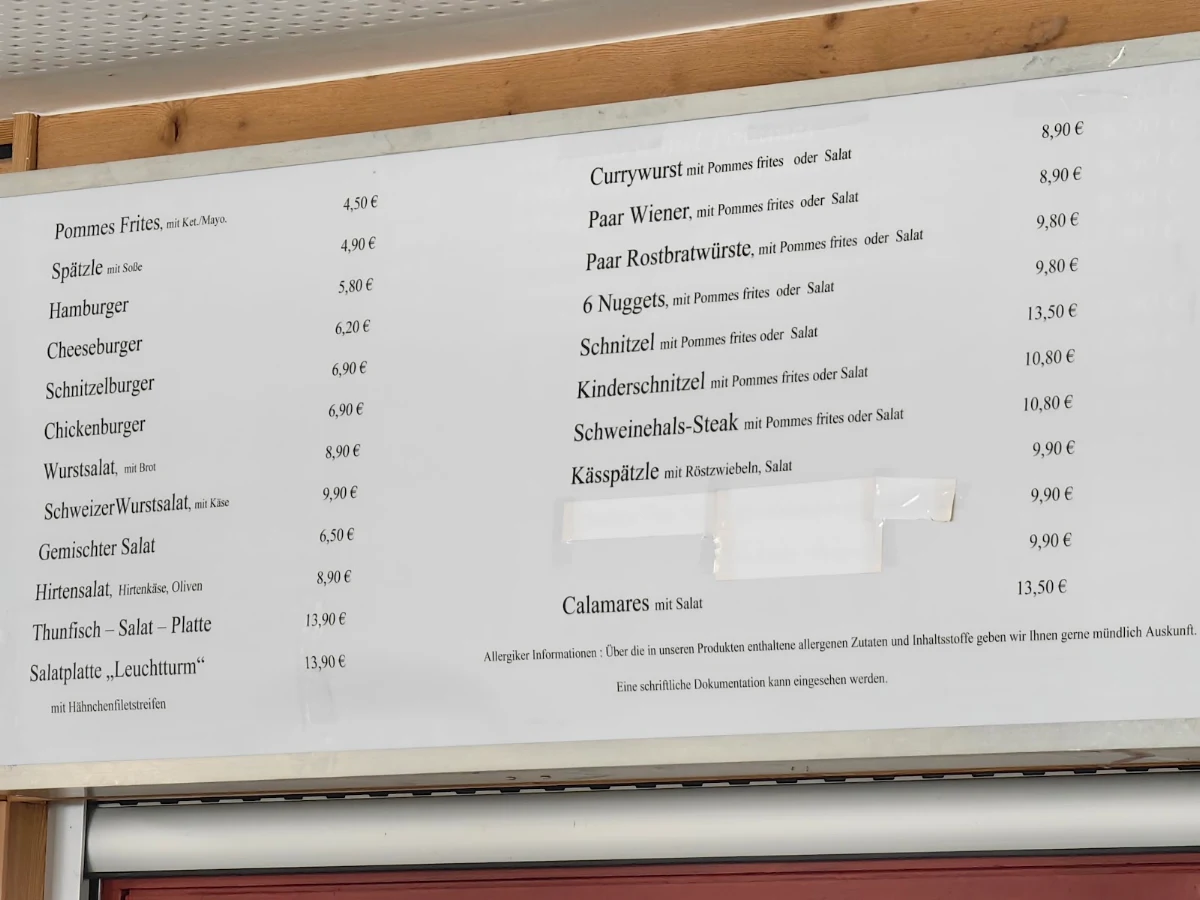 Pommes Frites, mit Ket./Mayo. 4,50 €
Spätzle mit Soße 4,90 €
Hamburger 5,80 €
Cheeseburger 6,20 €
Schnitzelburger 6,90 €
Chickenburger 6,90 €
Wurstsalat, mit Brot 8,90 €
SchweizerWurstsalat, mit Käse 9,90 €
Gemischter Salat 6,50 €
Hirtensalat, Hirtenkäse, Oliven 8,90 €
Thunfisch – Salat – Platte 13,90 €
Salatplatte „Leuchtturm“ 13,90 €
mit Hähnchenfiletstreifen
Currywurst mit Pommes frites oder Salat 8,90 €
Paar Wiener, mit Pommes frites oder Salat 8,90 €
Paar Rostbratwürste, mit Pommes frites oder Salat 9,80 €
6 Nuggets, mit Pommes frites oder Salat 9,80 €
Schnitzel mit Pommes frites oder Salat 13,50 €
Kinderschnitzel mit Pommes frites oder Salat 10,80 €
Schweinehals-Steak mit Pommes frites oder Salat 10,80 €
Kässpätzle mit Röstzwiebeln, Salat 9,90 €
9,90 €
9,90 €
Calamares mit Salat 13,50 €
Allergiker Informationen : Über die in unseren Produkten enthaltene allergenen Zutaten und Inhaltsstoffe geben wir Ihnen gerne mündlich Auskunft.
Eine schriftliche Dokumentation kann eingesehen werden.